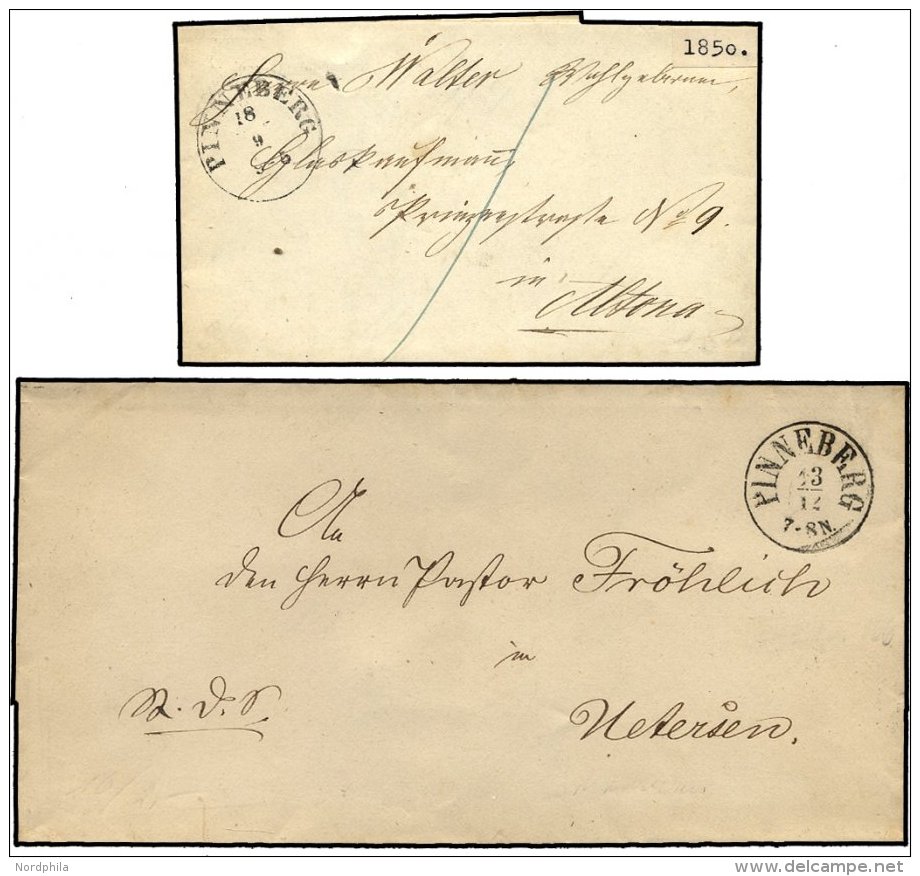 1850.
Herrn Walter Wohlgeboren,
PINNEBERG
18
9
Glaskaufmann
Prinzenstraße No 9.
in
Altona
PINNEBERG
13
12
7-8N.
An
den Herrn Pastor Fröhlich
in
Uetersen.
R. d. S.
Nordphila
www.delcampe.net